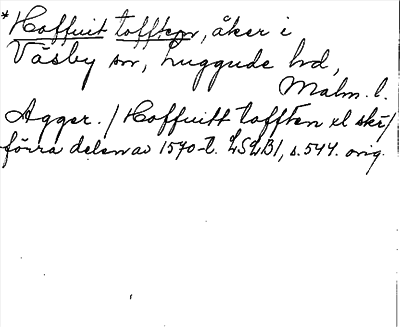 *Hoffuit tofften, åker i
Väsby sn, Luggude hd,
Malm. l.
Agger. / Hoffuitt tofften el skē/
förra delen av 1570-t. LSLB1, s. 544. orig.